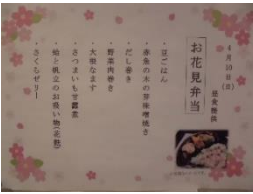 4月10日(日)
昼食提供
お花見弁当
・豆ごはん
・赤魚の木の芽味噌焼き
・だし巻き
・野菜肉巻き
・大根なます
・さつまいも甘露煮
・蛤と帆立のお吸い物(花麩)
・さくらゼリー